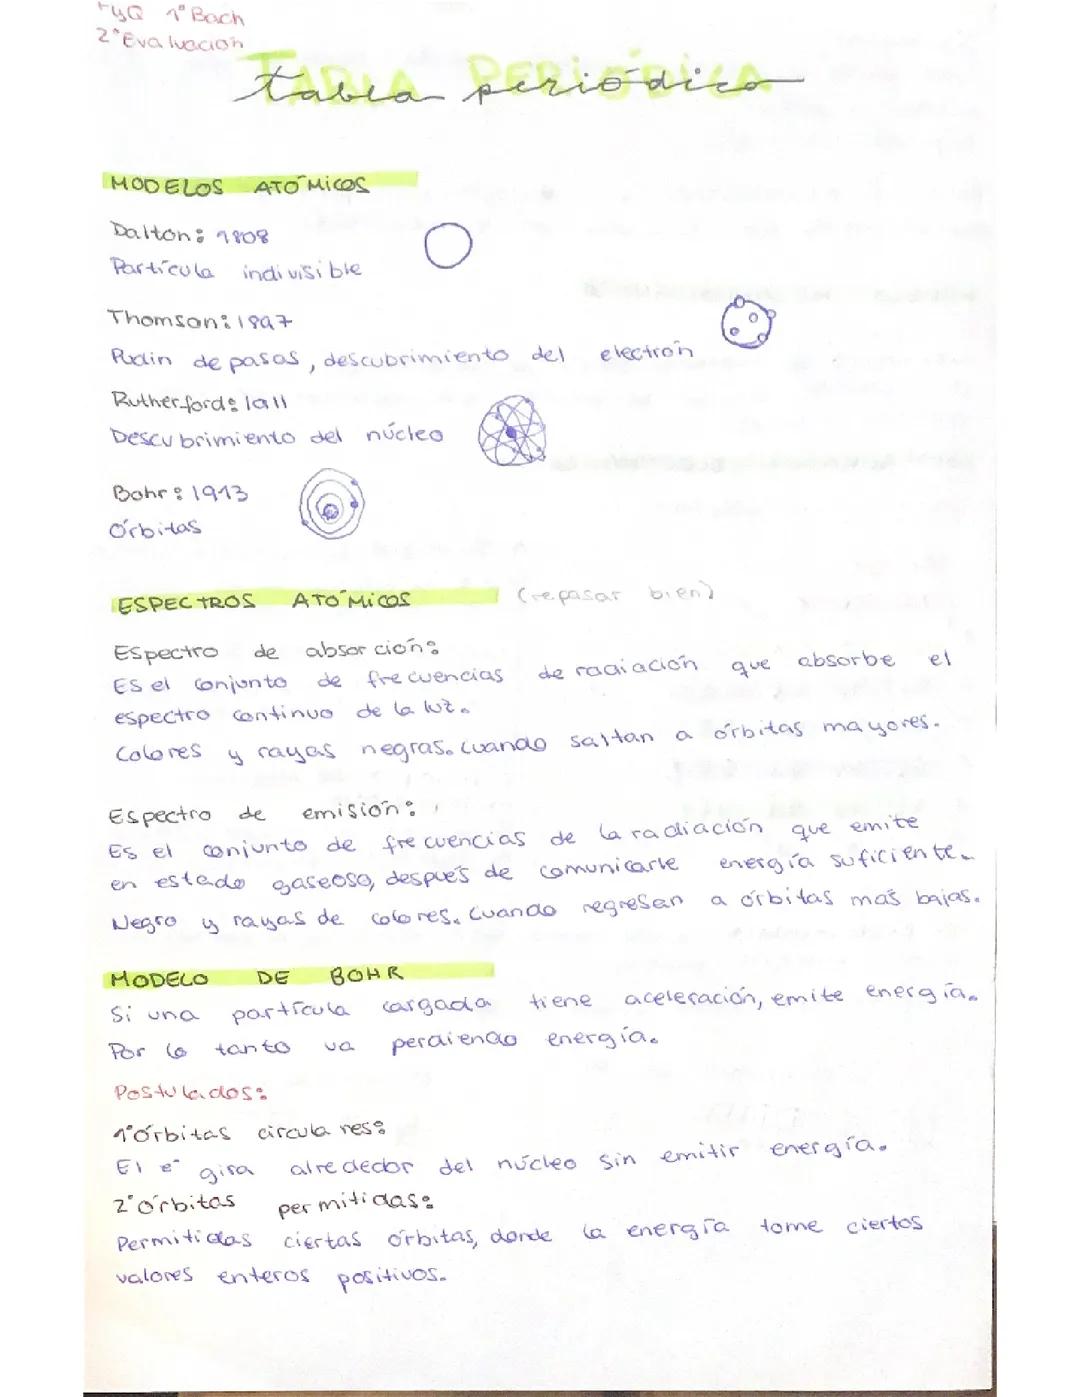 FyQ 1º Bach
2º Evaluación
TABLA PERIÓDICA
tabla periódica
MODELOS ATÓMICOS
Dalton: 1808
Partícula indivisible
Thomson: 1897
Pudin de pasas, descubrimiento del electrón
Rutherford: 1911
Descubrimiento del núcleo
Bohr: 1913
Órbitas
ESPECTROS ATÓMICOS (repasar bien)
Espectro de absorción:
Es el conjunto de frecuencias de radiación que absorbe el
espectro continuo de la luz.
Colores y rayas negras. Cuando saltan a órbitas mayores.
Espectro de emisión:
Es el conjunto de frecuencias de la radiación que emite
en estado gaseoso, después de comunicarle energía suficiente.
Negro y rayas de colores. Cuando regresan a órbitas más bajas.
MODELO DE BOHR
Si una partícula cargada tiene aceleración, emite energía.
Por lo tanto va perdiendo energía.
Postulados:
1º Órbitas circulares:
El e⁻ gira alrededor del núcleo sin emitir energía.
2º Órbitas permitidas:
Permitidas ciertas órbitas, donde la energía tome ciertos
valores enteros positivos.